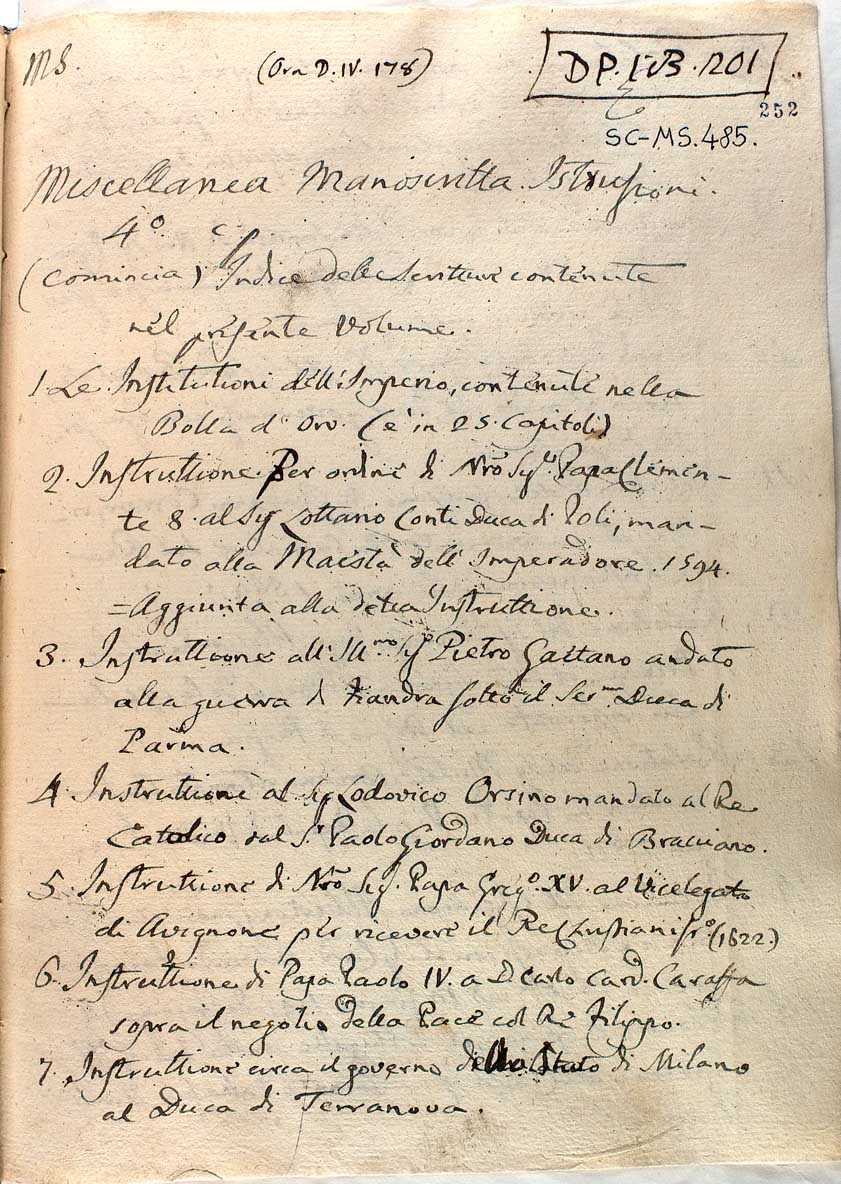 MS.
(Ora D. IV. 178)
DP. IVB. 1201
252
SC-MS. 485.
Miscellanea Manoscritta. Istrusioni.
4º. c.
(comincia) Indice delle Scritture contenute
nel presente Volume.
1. Le Institutioni dell'Imperio, contenute nella
Bolla d'Oro. (è in 25. Capitoli)
2. Instruttione per ordine di Nrõ Sigre Papa Clemen-
te 8. al Sig Lottario Conti Duca di Poli, man-
dato alla Maistà dell'Imperadore. 1594.
=Aggiunta alla detta Instruttione.
3. Instruttione all'Illmo Sig Pietro Gaetano andato
alla guerra di Fiandra sotto il Sermo Duca di
Parma.
4 Instruttione al Sig Lodovico Orsino mandato al Re
Catolico dal Sr Paolo Giordano Duca di Bracciano.
5. Instruttione di Nrõ Sig. Papa Gregº. XV. al Vicelegato
di Avignone per ricevere il Re Christianissº. (1622.)
6. Instruttione di Papa Paolo IV. a D. Carlo Card. Caraffa
sopra il negotio della Pace col Re Filippo.
7. Instruttione circa il governo dello Stato di Milano
al Duca di Terranova.